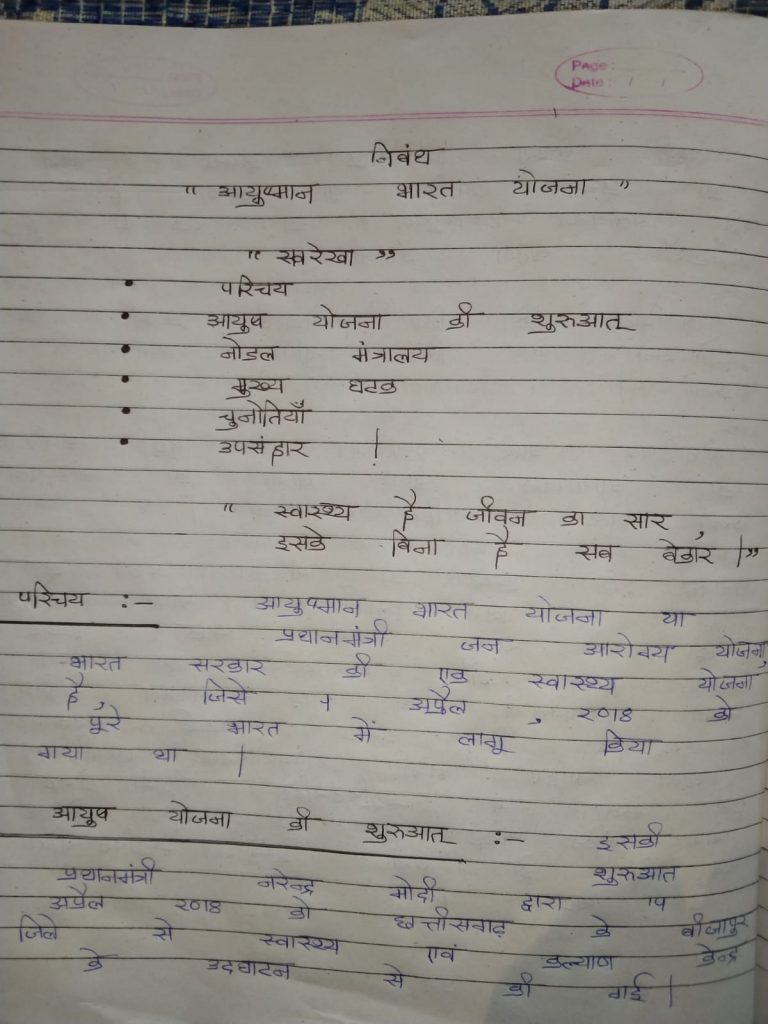 PAGE:
DATE: / /
निबंध
" आयुष्मान भारत योजना "
" रूपरेखा "
• परिचय
• आयुष योजना की शुरुआत
• नोडल मंत्रालय
• मुख्य घटक
• चुनोतियाँ
• उपसंहार |
" स्वास्थ्य है जीवन का सार,
इसके बिना है सब बेकार |"
परिचय :- आयुष्मान भारत योजना या
प्रधानमंत्री जन आरोग्य योजना,
भारत सरकार की एक स्वास्थ्य योजना
है, जिसे 1 अप्रैल, २०18 को
पूरे भारत में लागू किया
गया था |
आयुष योजना की शुरुआत :- इसकी
शुरुआत
प्रधानमंत्री नरेन्द्र मोदी द्वारा 14
अप्रैल २०18 को छत्तीसगढ़ के बीजापुर
जिले से स्वास्थ्य एवं कल्याण केन्द्र
के उदघाटन से की गई |